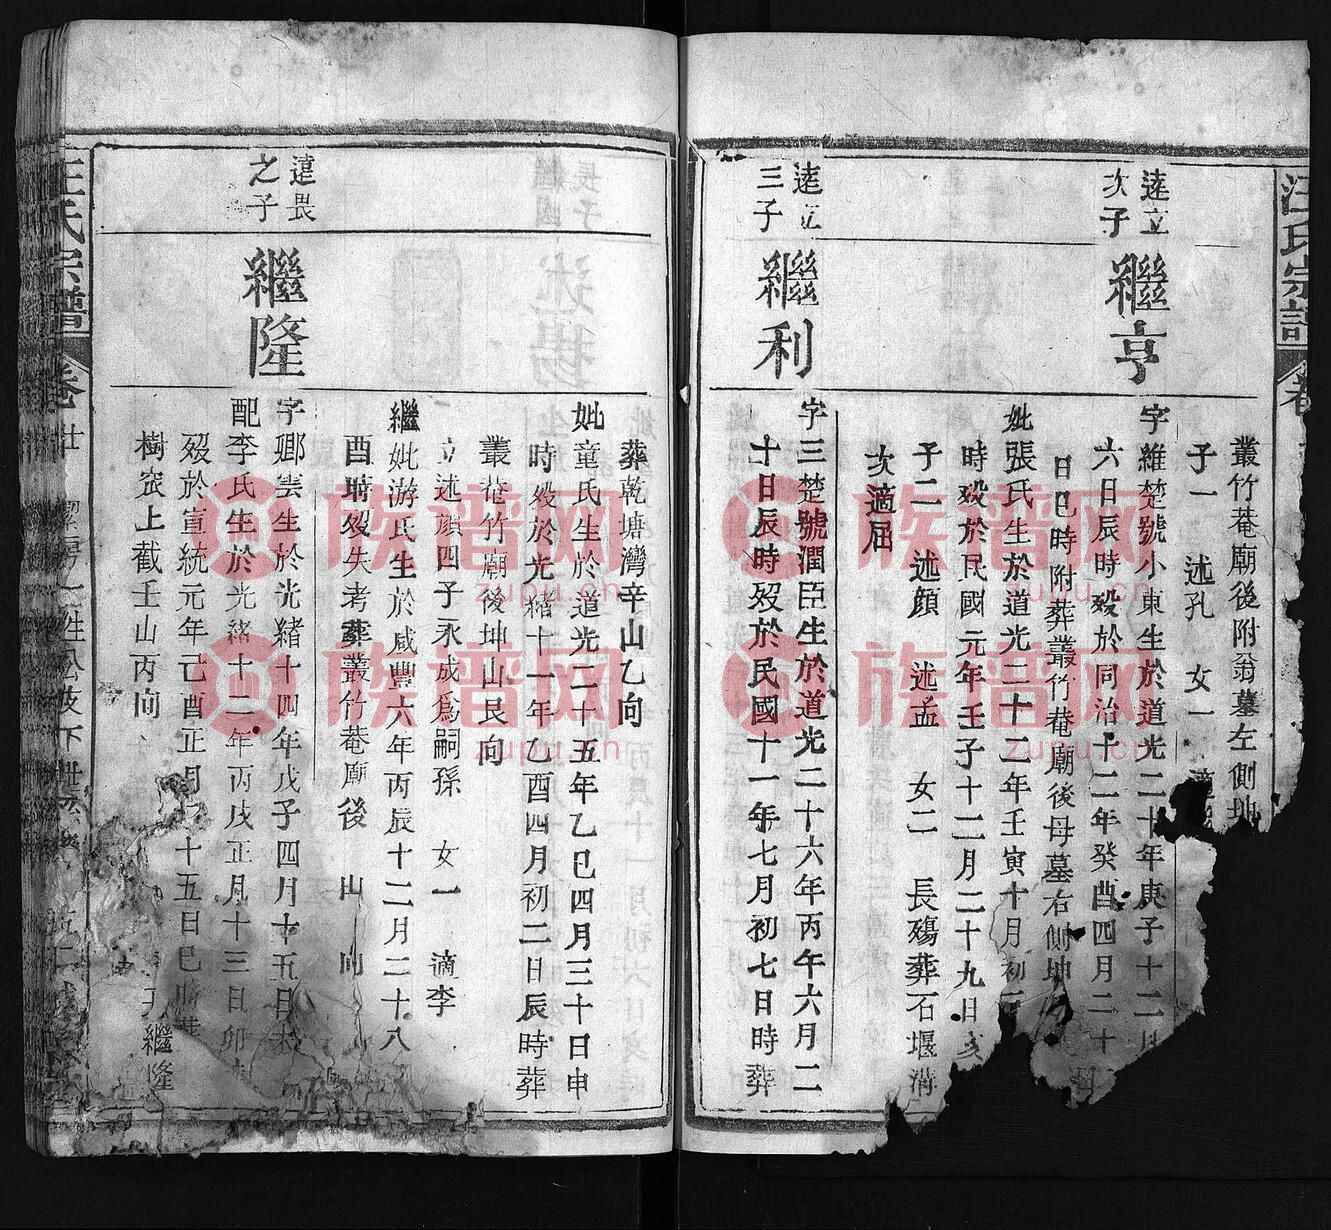 汪氏宗譜
叢竹菴廟後附翁墓左側坤
子一 述孔 女一
逵立次子
繼亨
字維楚號小東生於道光二十年庚子十二月
六日辰時歿於同治十二年癸酉四月二十
日巳時附葬叢竹菴廟後母墓右側坤
妣張氏生於道光二十二年壬寅十月初
時歿於民國元年壬子十二月二十九日亥
子二 述顏 述孟 女二 長殤葬石堰溝
次適屈
逵立三子
繼利
字三楚號潤臣生於道光二十六年丙午六月二
十日辰時歿於民國十一年七月初七日時葬
葬乾塘灣辛山乙向
妣童氏生於道光二十五年乙巳四月三十日申
時歿於光緒十一年乙酉四月初二日辰時葬
叢菴竹廟後坤山艮向
立述顏四子永成為嗣孫 女一 適李
繼妣游氏生於咸豐六年丙辰十二月二十八
酉時歿失考葬叢竹菴廟後 山 向
逵畏之子
繼隆
字卿雲生於光緒十四年戊子四月十五日
配李氏生於光緒十二年丙戌正月十三日卯
歿於宣統元年己酉正月 十五日巳時葬
樹窊上截壬山丙向
繼隆
汪氏宗譜 卷廿